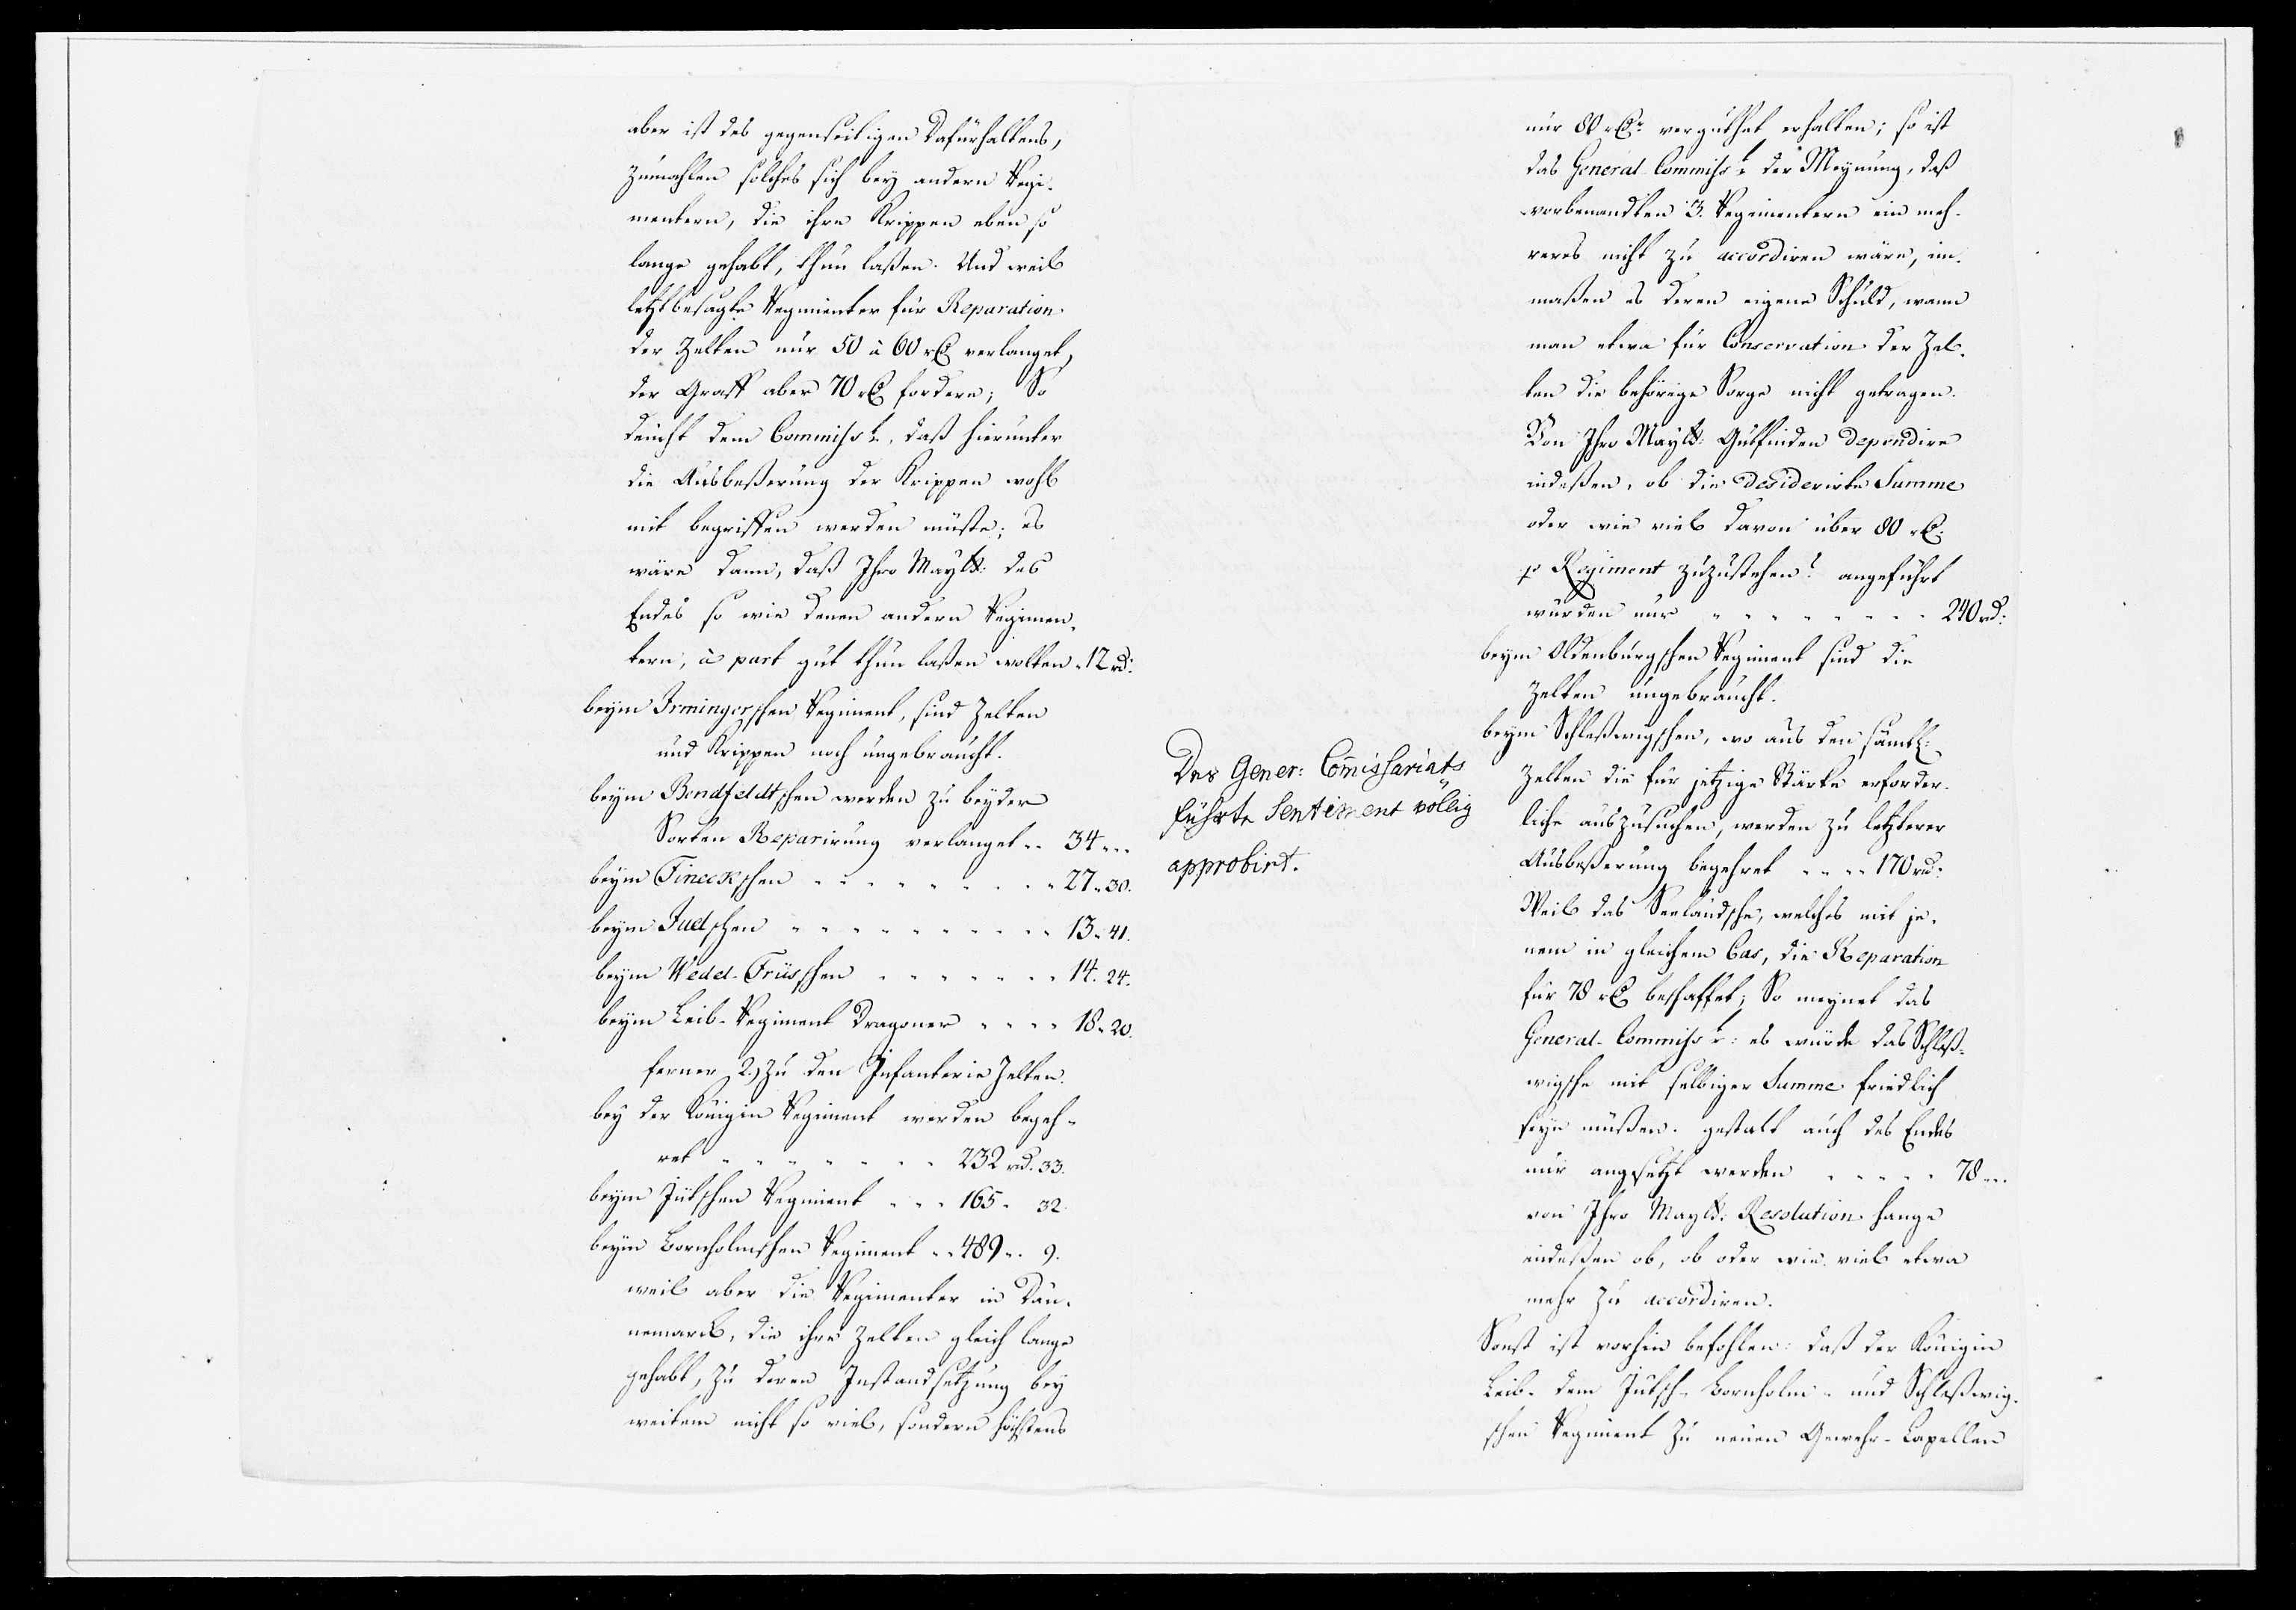 aber ist des gegenseitigen Dafürhaltens,
zumahlen solches sich bey andern Regi-
mentern, die ihre Krippen eben so
lange gehabt, thun laßen. Und weil
letztbesagte Regimenter für Reparation
der Zelten nur 50 à 60 rC verlanget,
der Graff aber 70 rC fordere; So
deucht dem Commissrt., daß hierunter
die Ausbeßerung der Krippen wohl
mit begriffen werden müste; es
wäre dann, daß Ihro Maytt: des
Endes so wie denen andern Regimen-
tern, à part gut thun laßen wolten. 12 rd:
beym Irmingerschen Regiment, sind Zelten
und Krippen noch ungebraucht.
beym Bendfeldtschen werden zu beyder
Sorten Reparirung verlanget .. 34 ...
beym Fineckschen . . . . . . . . 27. 30.
beym Juelschen . . . . . . . . . 13. 41.
beym Wedel-Früsschen . . . . . . . 14. 24.
beym Leib-Regiment Dragoner . . . . 18. 20.
ferner 2.) zu den Infanterie Zelten.
bey der Königin Regiment werden begeh-
ret . . . . . . . . 232 rd. 33.
beym Jütschen Regiment . . . 165. 32.
beym Bornholmschen Regiment .. 489 .. 9.
weil aber die Regimenter in Dän-
nemarck, die ihre Zelten gleich lange
gehabt, zu deren Instandsetzung bey
weitem nicht so viel, sondern höchstens
nur 80 rCr. verguthet erhalten; so ist
das General-Commissrt der Meynung, daß
vorbenandten 3. Regimentern ein meh-
reres nicht zu accordiren wäre, im-
maßen es deren eigene Schuld, wann
man etwa für Conservation der Zel-
ten die behörige Sorge nicht getragen.
Von Ihro Maytt: Gutfinden dependire
indeßen, ob die desiderirte Summe
oder wie viel davon über 80 rC:
p Regiment zuzustehen? angeführt
wurden nur . . . . . . . . 240 rd:
beym Oldenburgschen Regiment sind die
Zelten ungebraucht.
beym Schleßwigschen, wo aus den sämtl:
Zelten die für jetzige Stärke erforder-
liche auszusuchen, werden zu letzterer
Ausbeßerung begehret . . . . 170 rd:
Weil das Seeländsche, welches mit je-
nem in gleichem Cas, die Reparation
für 78 rC beschaffet; So meynet das
General-Commissrt: es würde das Schleß-
wigsche mit selbiger Summe friedlich
seyn müßen. gestalt auch des Endes
nur angesetzt werden . . . . . 78 ...
von Ihro Maytt: Resolution hange
indeßen ob, ob oder wie viel etwa
mehr zu accordiren.
Sonst ist vorhin befohlen: daß der Königin
Leib- dem Jütsch- Bornholm- und Schleßwig-
schen Regiment zu neuen Gewehr-Capellen
Des Gener: Comissariats
führte Sentiment völlig
approbirt.